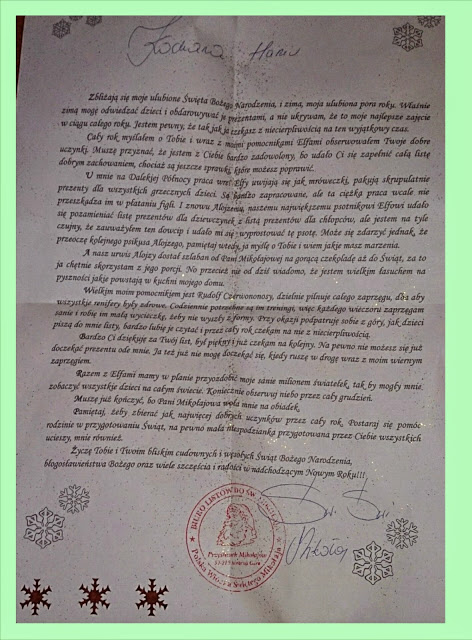 Kochana Haniu
Zbliżają się moje ulubione Święta Bożego Narodzenia, i zima, moja ulubiona pora roku. Właśnie
zimą mogę odwiedzać dzieci i obdarowywać je prezentami, a nie ukrywam, że to moje najlepsze zajęcie
w ciągu całego roku. Jestem pewny, że tak jak ja czekasz z niecierpliwością na ten wyjątkowy czas.
Cały rok myślałem o Tobie i wraz z moimi pomocnikami Elfami obserwowałem Twoje dobre
uczynki. Muszę przyznać, że jestem z Ciebie bardzo zadowolony, bo udało Ci się zapełnić całą listę
dobrym zachowaniem, chociaż są jeszcze sprawki, które możesz poprawić.
U mnie na Dalekiej Północy praca wre! Elfy uwijają się jak mróweczki, pakują skrupulatnie
prezenty dla wszystkich grzecznych dzieci. Są bardzo zapracowane, ale ta ciężka praca wcale nie
przeszkadza im w płataniu figli. I znowu Alojzemu, naszemu największemu psotnikowi Elfowi udało
się pozamieniać listę prezentów dla dziewczynek z listą prezentów dla chłopców, ale jestem na tyle
czujny, że zauważyłem ten dowcip i udało mi się wyprostować tę psotę. Może się zdarzyć jednak, że
przeoczę kolejnego psikusa Alojzego, pamiętaj wtedy, ja myślę o Tobie i wiem jakie masz marzenia.
A nasz urwis Alojzy dostał szlaban od Pani Mikołajowej na gorącą czekoladę aż do Świąt, za to
ja chętnie skorzystam z jego porcji. No przecież nie od dziś wiadomo, że jestem wielkim łasuchem na
pyszności jakie powstają w kuchni mojego domu.
Wielkim moim pomocnikiem jest Rudolf Czerwononosy, dzielnie pilnuje całego zaprzęgu, dba aby
wszystkie renifery były zdrowe. Codziennie potrzebne są im treningi, więc każdego wieczoru zaprzęgam
sanie i robię im małą wycieczkę, żeby nie wyszły z formy. Przy okazji podpatruję sobie z góry, jak dzieci
piszą do mnie listy, bardzo lubię je czytać i przez cały rok czekam na nie z niecierpliwością.
Bardzo Ci dziękuję za Twój list, był piękny i już czekam na kolejny. Na pewno nie możesz się już
doczekać prezentu ode mnie. Ja też już nie mogę doczekać się, kiedy ruszę w drogę wraz z moim wiernym
zaprzęgiem.
Razem z Elfami mamy w planie przyozdobić moje sanie milionem światełek, tak by mogły mnie
zobaczyć wszystkie dzieci na całym świecie. Koniecznie obserwuj niebo przez cały grudzień.
Muszę już kończyć, bo Pani Mikołajowa woła mnie na obiadek.
Pamiętaj, żeby zbierać jak najwięcej dobrych uczynków przez cały rok. Postaraj się pomóc
rodzinie w przygotowaniu Świąt, na pewno mała niespodzianka przygotowana przez Ciebie wszystkich
ucieszy, mnie również.
Życzę Tobie i Twoim bliskim cudownych i wesołych Świąt Bożego Narodzenia,
błogosławieństwa Bożego oraz wiele szczęścia i radości w nadchodzącym Nowym Roku!!!
Św.
Mikołaj
BIURO LISTÓW DO ŚW.
Przysłonek Mikołajów
Polska Wioska Świętego Mikołaja